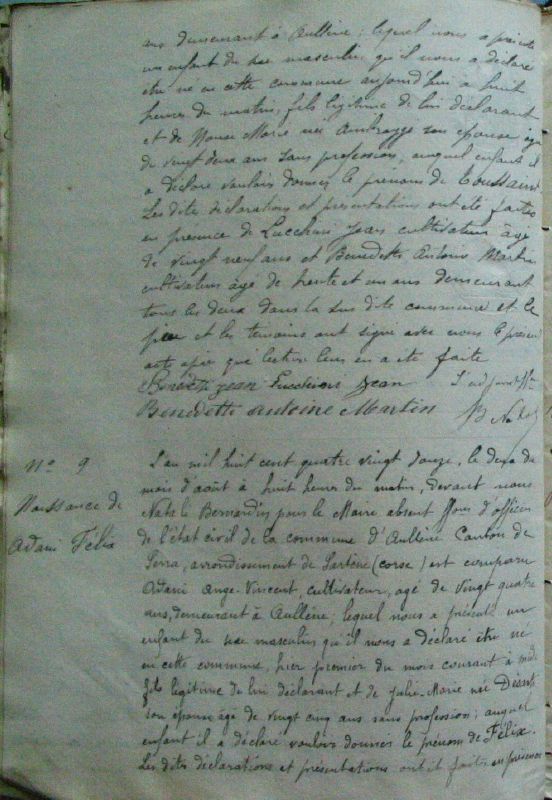 ans demeurant à Aullène; lequel nous a présenté
un enfant du sexe masculin qu'il nous a déclaré
être né en cette commune aujourd'hui à huit
heures du matin, fils légitime de lui déclarant
et de Marie née son épouse âgée
de vingt deux ans sans profession, auquel enfant il
a déclaré vouloir donner le prénom de Toussaint
Les dites déclarations et présentations ont été faites
en présence de Lucchini Jean cultivateur âgé
de vingt neuf ans et Benedetti Antoine Martin
cultivateur âgé de trente et un ans demeurant
tous les deux dans la sus dite commune et le
père et les témoins ont signé avec nous le présent
acte après que lecture leur en a été faite
Jean Lucchini Jean L'adjoint
Benedetti Antoine Martin
Nº 9 L'an mil huit cent quatre vingt douze, le deux du
mois d'août à huit heures du matin, devant nous
Naissance de Natale Bernardin pour le Maire absent d'officier
Adani Félix de l'état civil de la commune d'Aullène Canton de
Serra, arrondissement de Sartène (corse) est comparu
Adani Ange-Vincent, cultivateur, âgé de vingt quatre
ans, demeurant à Aullène; lequel nous a présenté un
enfant du sexe masculin qu'il nous a déclaré être né
en cette commune, hier premier du mois courant à midi
fils légitime de lui déclarant et de Julie-Marie née
son épouse âgé de vingt cinq ans sans profession; auquel
enfant il a déclaré vouloir donner le prénom de Félix.
Les dites déclarations et présentations ont été faites en présence